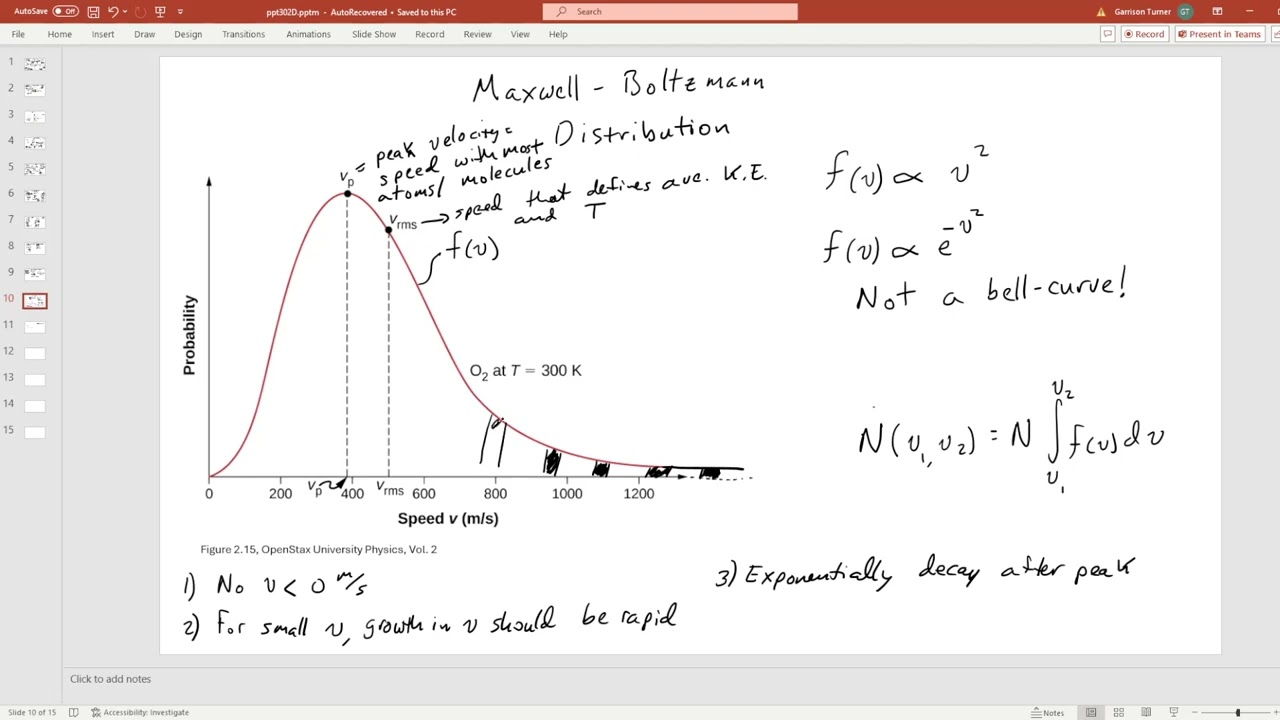 AutoSave Off
ppt302D.pptm - AutoRecovered • Saved to this PC
Search
Garrison Turner GT
File Home Insert Draw Design Transitions Animations Slide Show Record Review View Help
Record Present in Teams
1
2
3
4
5
6
7
8
9
10
11
12
13
14
15
Maxwell - Boltzmann
Distribution
vp = peak velocity =
speed with most
atoms/ molecules
vrms → speed that defines ave. K.E.
and T
f(v)
Probability
O₂ at T = 300 K
0 200 vp 400 vrms 600 800 1000 1200
Speed v (m/s)
Figure 2.15, OpenStax University Physics, Vol. 2
f(v) ∝ v²
f(v) ∝ e^-v²
Not a bell-curve!
N(v₁, v₂) = N ∫ f(v) dv
v₂
v₁
1) No v < 0 m/s
2) For small v, growth in v should be rapid
3) Exponentially decay after peak
Click to add notes
Slide 10 of 15
Accessibility: Investigate
Notes